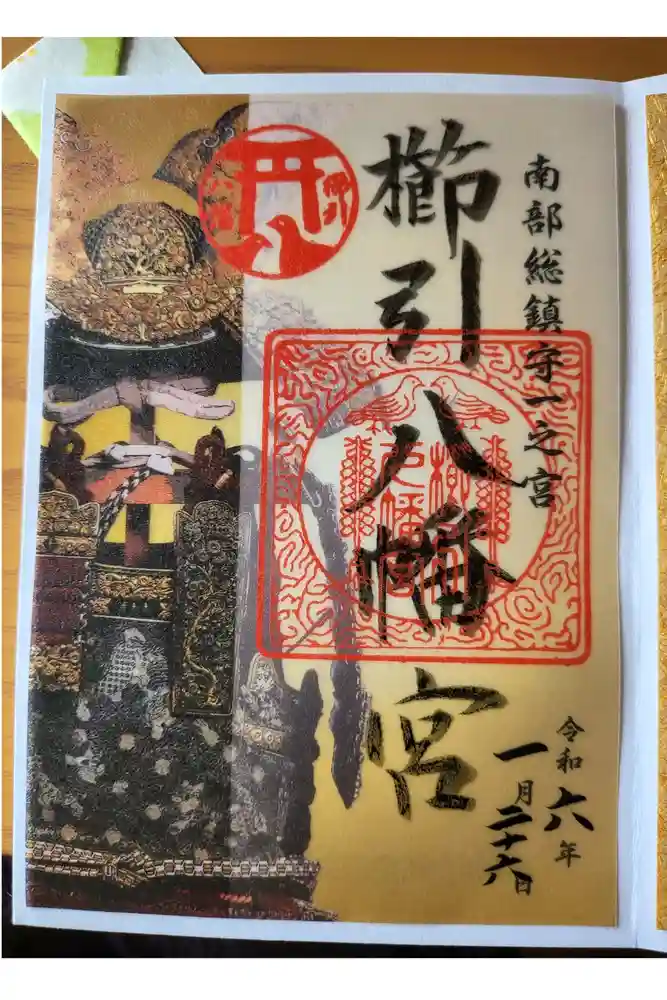 南部総鎮守一之宮
櫛引八幡宮
令和六年
一月二十六日
櫛引
八幡宮